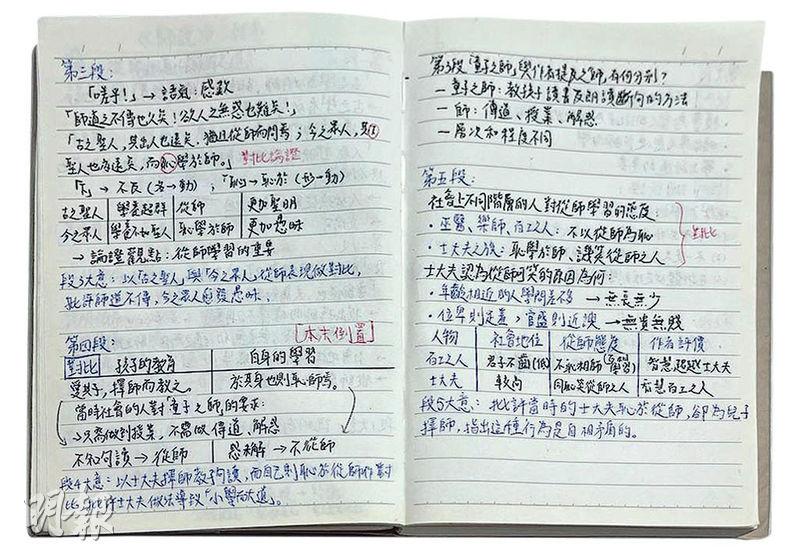 第三段：
「嗟乎！」→ 語氣：感歎
「師道之不傳也久矣！欲人之無惑也難矣！」
「古之聖人，其出人也遠矣，猶且從師而問焉；今之眾人，其下
聖人也亦遠矣，而恥學於師。」對比論證
「下」→ 不及（名→動）；「恥」→ 恥於（形→動）
古之聖人 學意超群 從師 更加聖明
今之眾人 學意不如聖人 恥學於師 更加愚昧
→ 論證觀點：從師學習的重要
段3大意：以「古之聖人」與「今之眾人」從師表現做對比，
批評師道不傳，今之眾人愈發愚昧。
第四段： 本末倒置
對比 孩子的教育 自身的學習
愛其子，擇師而教之。 於其身也則恥師焉。
當時社會的人對「童子之師」的要求：
→ 只需做到授業，不需做傳道、解惑
不知句讀 → 從師 惑不解 → 不從師
段4大意：以士大夫擇師教句讀，而自己則恥於從師作對
比，批評士大夫做法導致「小學而大遺」。
第3段「童子之師」與作者提及之「師」有何分別？
－童子之師：教孩子讀書及朗讀斷句的方法
－師：傳道、授業、解惑
－層次和程度不同
第五段：
社會上不同階層的人對從師學習的態度：
・巫醫、樂師、百工之人：不以從師為恥
・士大夫之族：恥學於師、譏笑從師之人
對比
士大夫認為從師可笑的原因為何：
・年齡相近的人學問差不多 → 無長無少
・位卑則足羞，官盛則近諛 → 無貴無賤
人物 社會地位 從師態度 作者評價
百工之人 君子不齒（低） 不恥相師 智慧超越士大夫
士大夫 較高 同恥笑從師之人 智慧百工之人
段5大意：批評當時的士大夫恥於從師，卻為兒子
擇師，指出這種行為是自相矛盾的。
明報